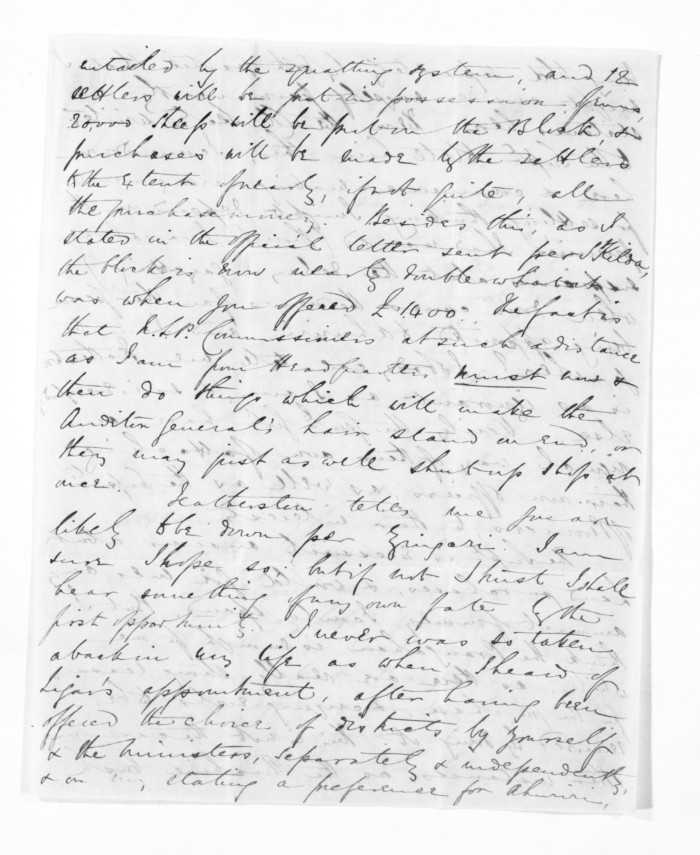 entailed by the squatting system, and 12
settlers will be put in possession. Again,
20,000 sheep will be put on the Block, &
purchases will be made by the settlers
to the extent of nearly, if not quite, all
the purchase money. Besides this, as I
stated in the official letter sent per St Kilda,
the block is now nearly double what it
was when you offered £1400. The fact is
that N.L.P. Commissioners at such a distance
as I am from Headquarters must now &
then do things which will make the
Auditor General's hair stand on end, or
they may just as well shut up shop at
once. Featherston tells me you are
likely to be down per Zingari. I am
sure I hope so: but if not I trust I shall
hear something of my own fate by the
first opportunity. I never was so taken
aback in my life as when I heard of
Ligar's appointment, after having been
offered the choice of districts by yourself
& the ministers, separately & independently,
& on my stating a preference for Ahuriri,